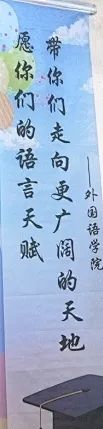 愿你们的语言天赋
带你们走向更广阔的天地
——外国语学院